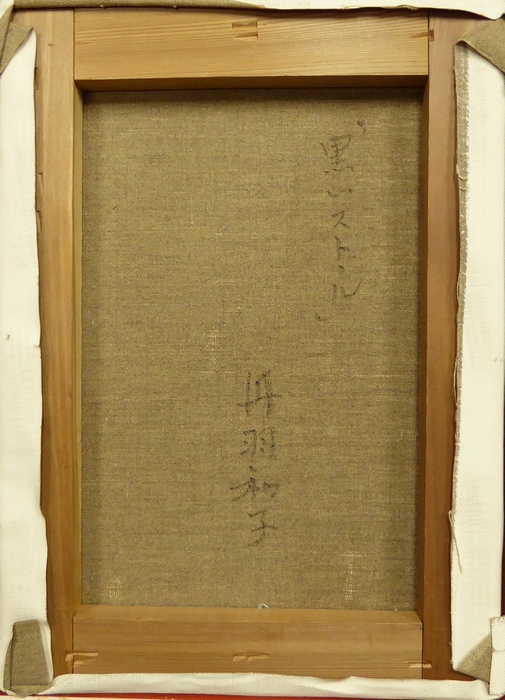 「黒いストール」
丹羽和子